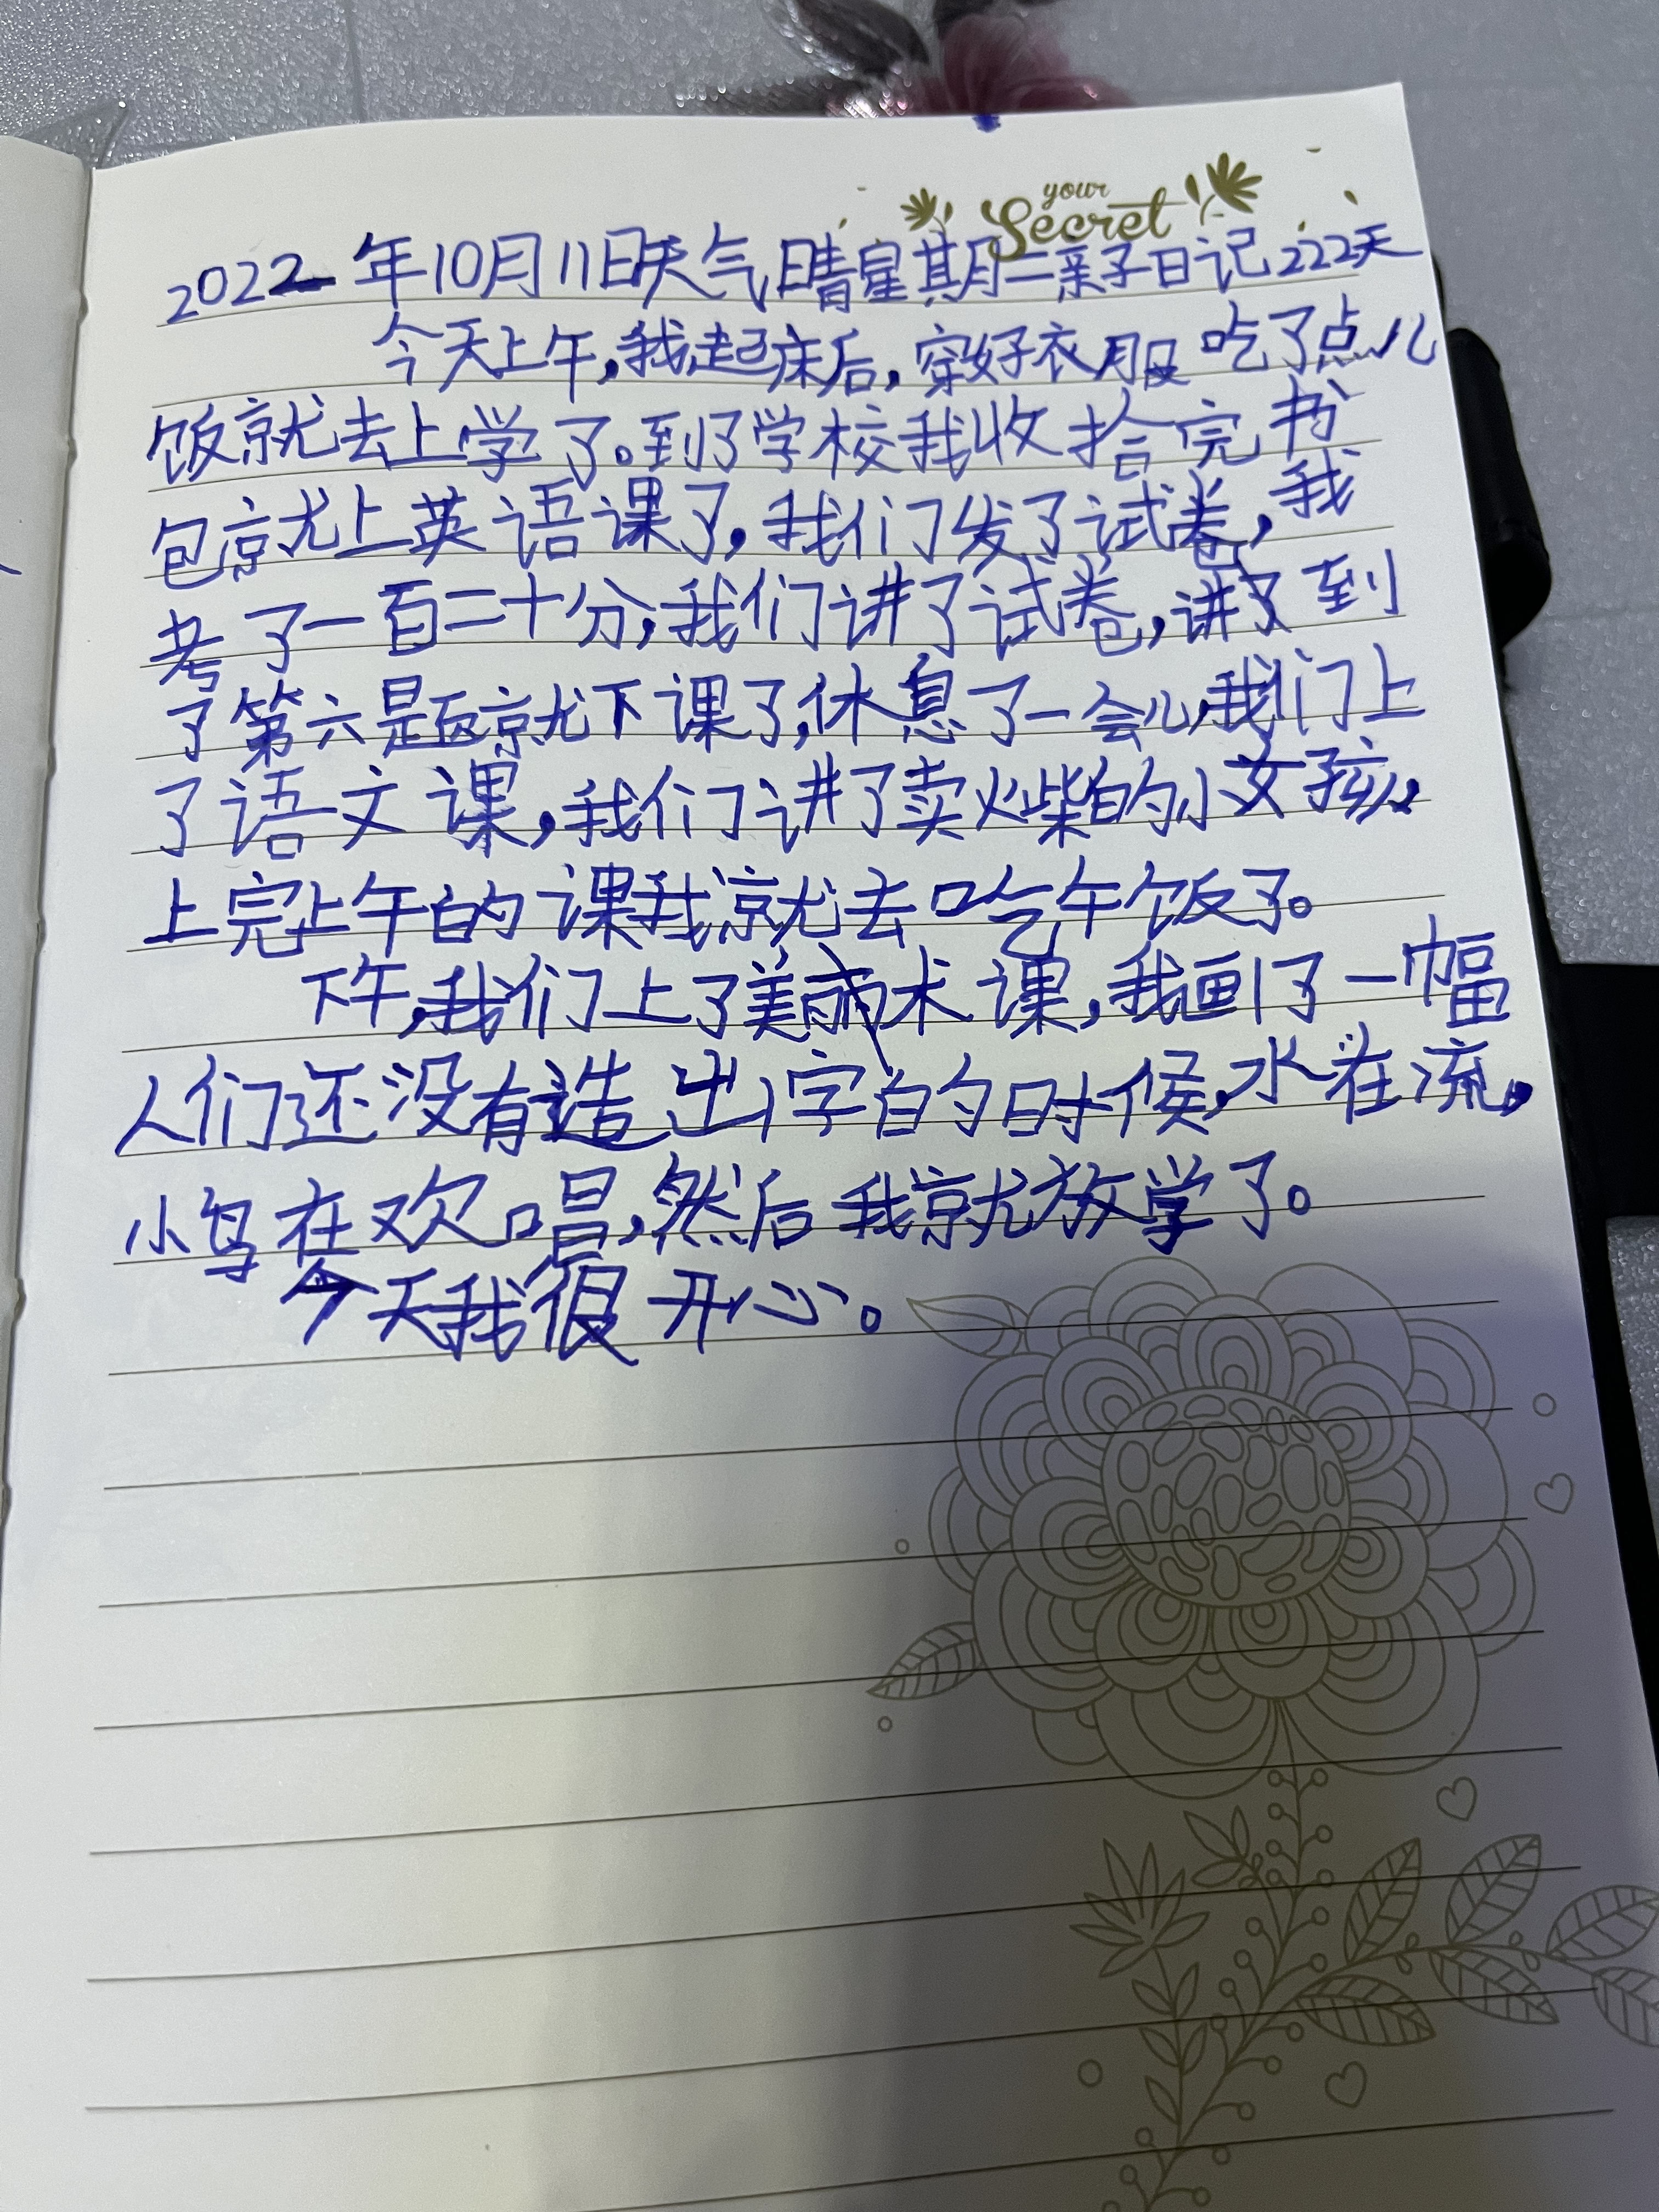 your
Secret
2022年10月11日天气晴星期二亲子日记222天
今天上午,我起床后,穿好衣服吃了点儿
饭就去上学了。到了学校我收拾完书
包就上英语课了,我们发了试卷,我
考了一百二十分,我们讲了试卷,讲到
了第六题就下课了,休息了一会儿,我们上
了语文课,我们讲了卖火柴的小女孩,
上完上午的课我就去吃午饭了。
下午,我们上了美术课,我画了一幅
人们还没有造出字的时候,水在流,
小鸟在欢唱,然后我就放学了。
今天我很开心。